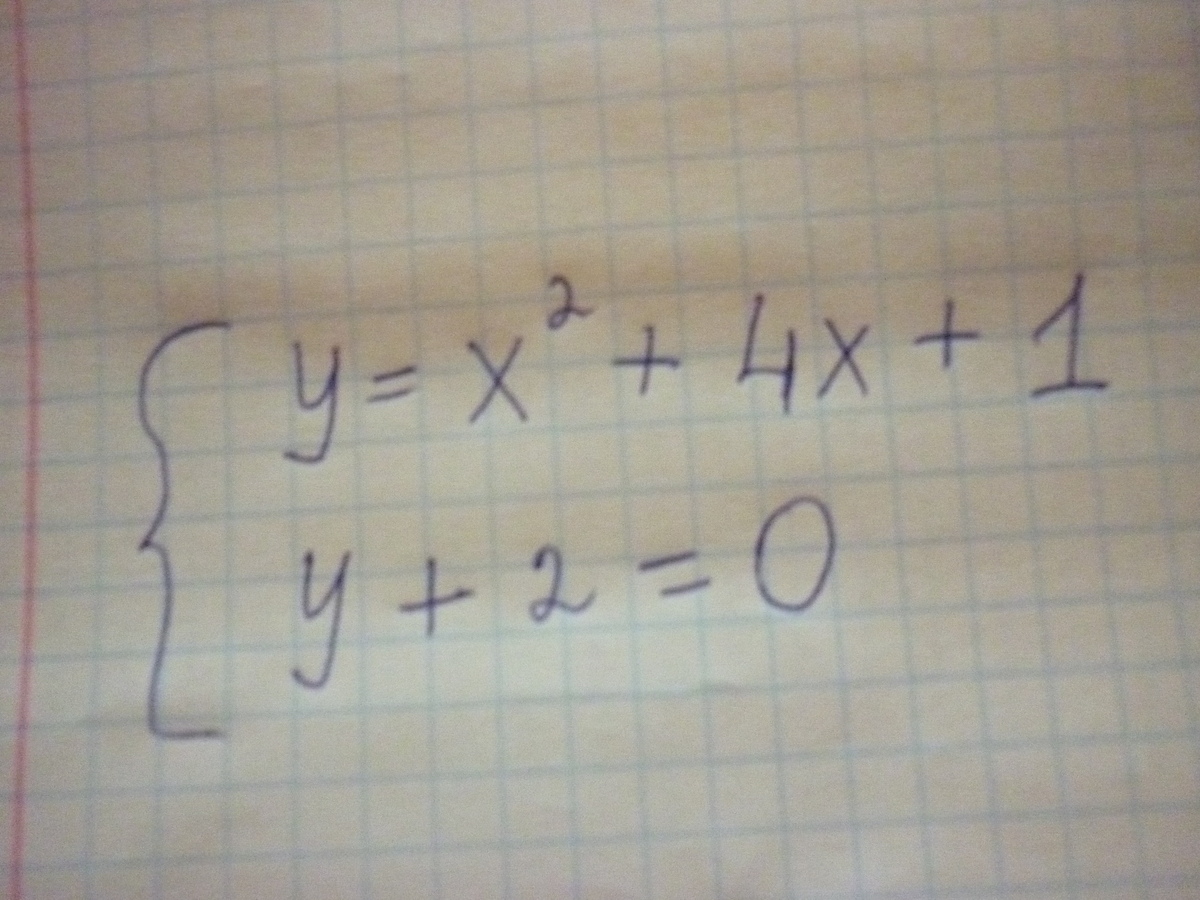 y = x² + 4x + 1
y + 2 = 0